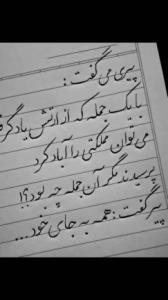 پیری می گفت :
با یک جمله که از ارتش یاد گرفتم
می توان مملکتی را آباد کرد
پرسیدند مگر آن جمله چه بود؟!
پیر گفت : همه به جای خود...